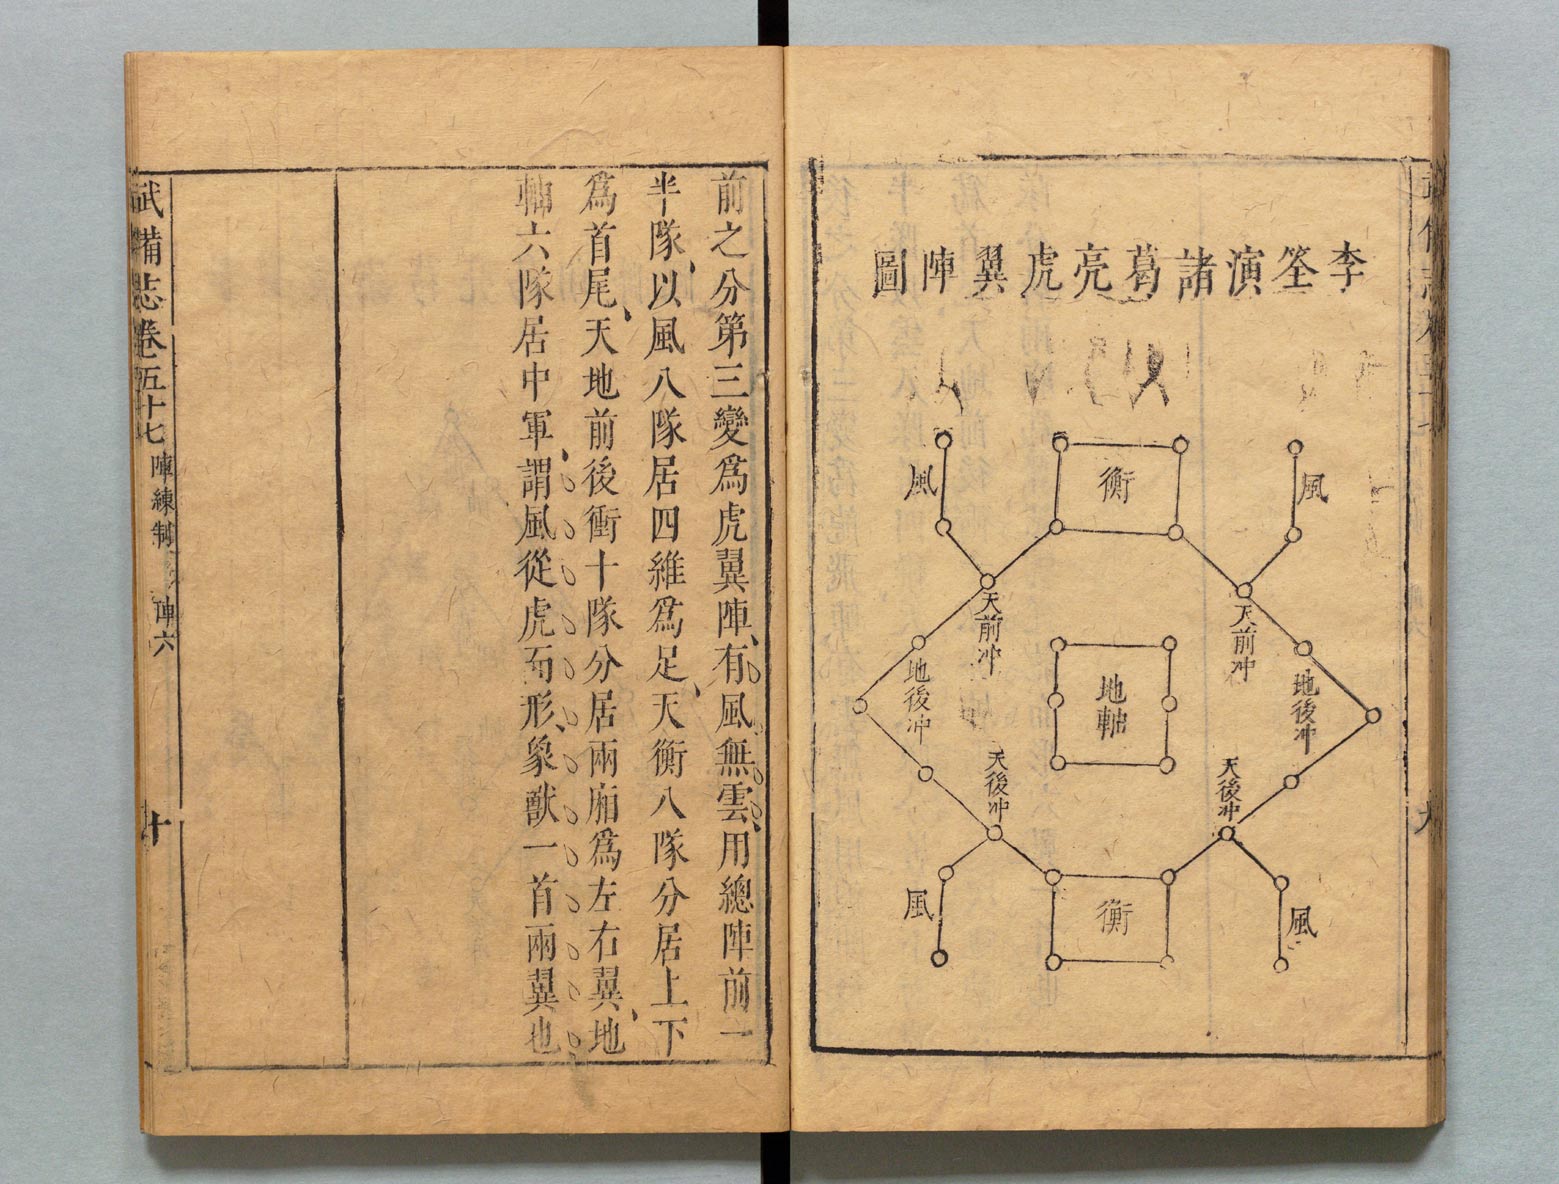 李筌演諸葛亮虎翼陣圖
風
衡
風
天前冲
天前冲
地後冲
地軸
地後冲
天後冲
天後冲
風
衡
風
前之分第三變爲虎翼陣有風無雲用總陣前一
半隊以風八隊居四維爲足天衡八隊分居上下
爲首尾天地前後衝十隊分居兩廂爲左右翼地
軸六隊居中軍謂風從虎而形象獸一首兩翼也
武備志卷五十七 陣練制 陣六 十